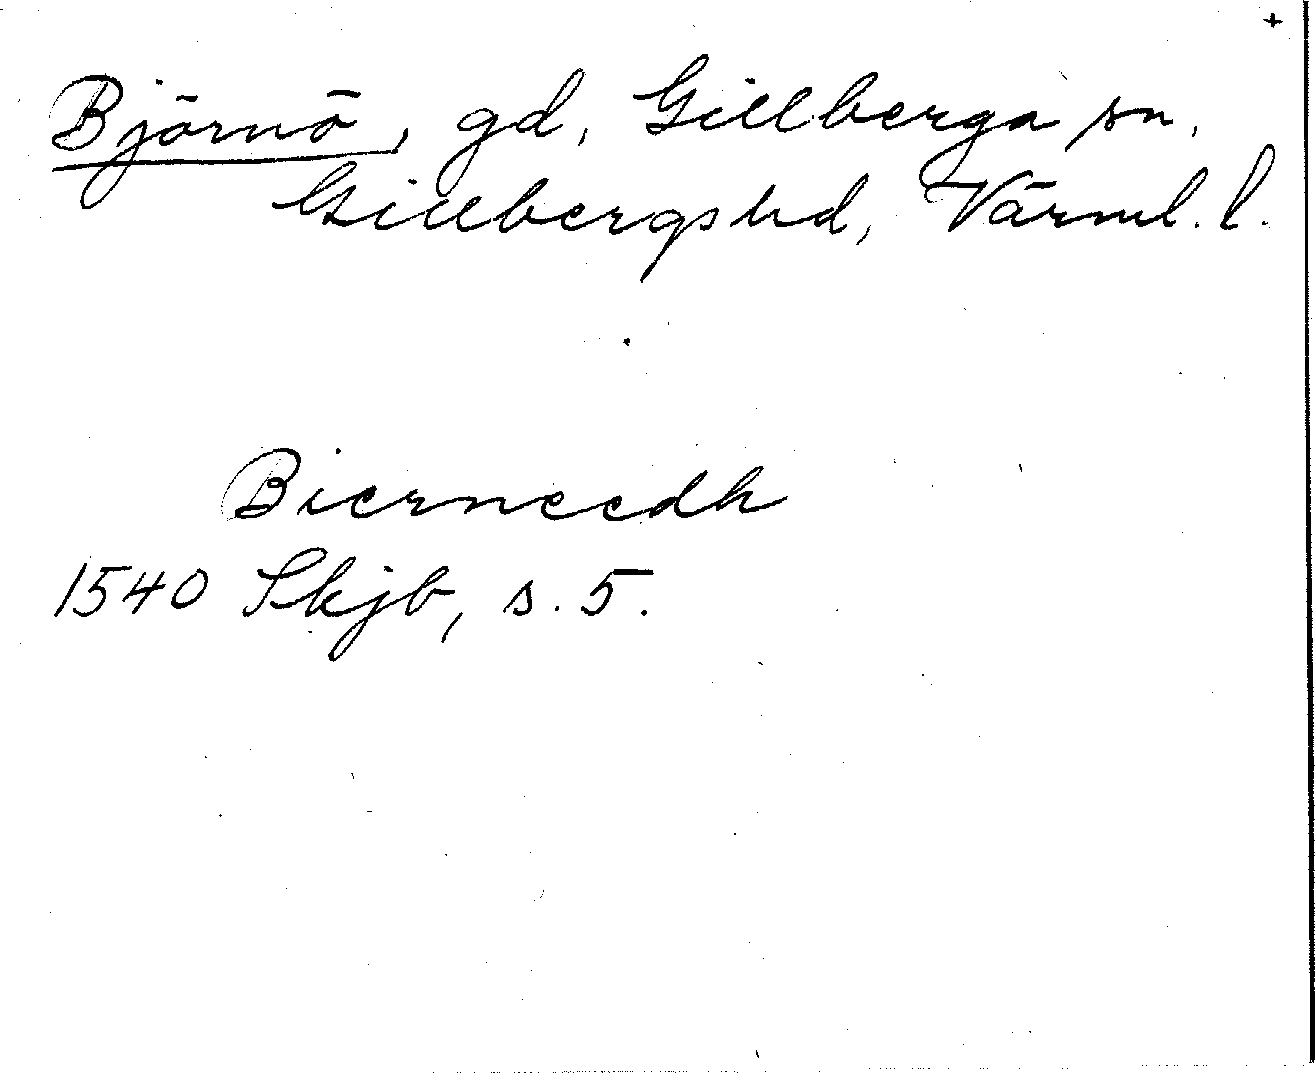 +
Björnö, gd, Gillberga sn,
Gillbergs hd, Värml. l.
Bierneedh
1540 Skjb, s. 5.